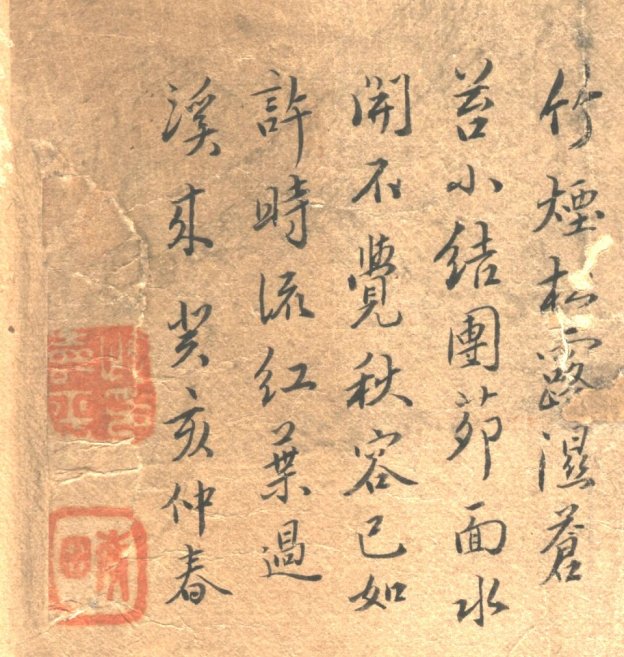 竹煙松露濕蒼
苔小結團茆面水
開不覺秋容已如
許時流紅葉過
溪來癸亥仲春